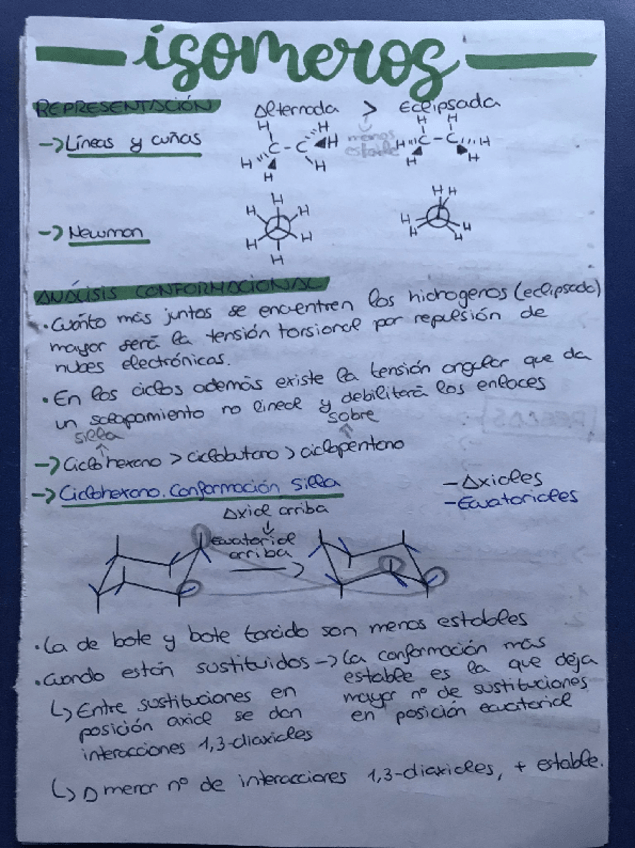 isomeros
REPRESENTACIÓN Alternada > Eclipsada
menos
estable
→ Líneas y cuñas
H H H H C - C H H H
H H H C - C H H H
→ Newman
H H H H H H
H H H H H H
ANÁLISIS CONFORMACIONAL
• Cuánto más juntos se encuentren los hidrogenos (eclipsada)
mayor será la tensión torsional por repulsión de
nubes electrónicas.
• En los ciclos además existe la tensión angular que da
un solapamiento no lineal y debilitará los enlaces
silla sobre
→ Ciclohexano > ciclobutano > ciclopentano
→ Ciclohexano. Conformación silla
- Axiales
- Ecuatoriales
Axial arriba
Ecuatorial
arriba
• La de bote y bote torcido son menos estables
• Cuando están sustituidos → La conformación más
estable es la que deja
mayor nº de sustituciones
en posición ecuatorial
↳ Entre sustituciones en
posición axial se dan
interacciones 1,3-diaxiales
↳ A menor nº de interacciones 1,3-diaxiales, + estable.